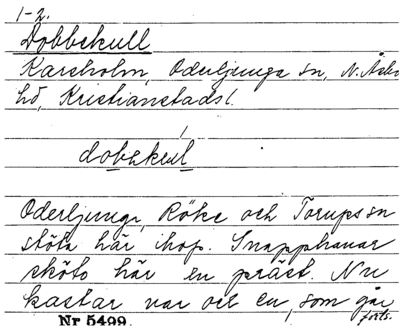 1-2.
Dobbskull
Karsholm, Oderljunga sn, N. Åsbo
hd, Kristianstads l.
dobbskul
Oderljunga, Röke och Torups sn
stöta här ihop. Snapphanar
sköto här en präst. Nu
kastar var och en, som går
forts.
Nr 5499.